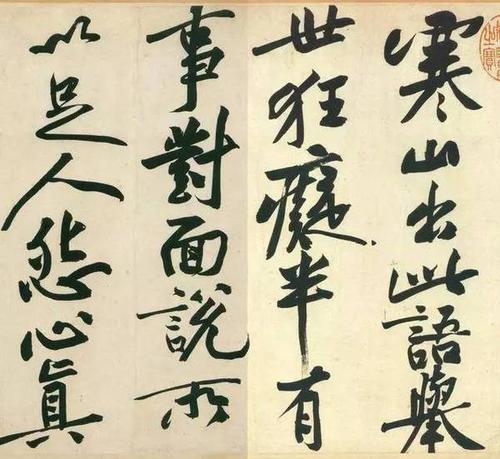 寒山出此語舉
世狂癡半有
事對面說所
以足人怨心真